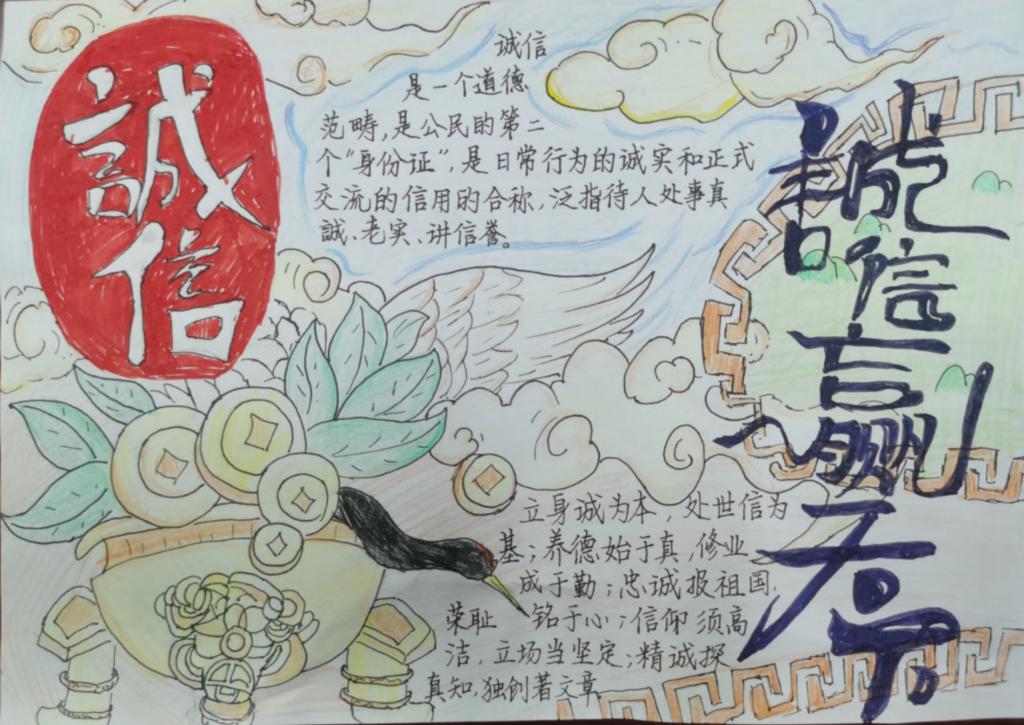 誠信
诚信
是一个道德
范畴,是公民的第二
个“身份证”,是日常行为的诚实和正式
交流的信用的合称,泛指待人处事真
誠、老实、讲信誉。
誠信赢天下
立身诚为本,处世信为
基;养德始于真,修业
成于勤;忠诚报祖国,
荣耻 铭于心;信仰须高
洁,立场当坚定;精诚探
真知,独创著文章